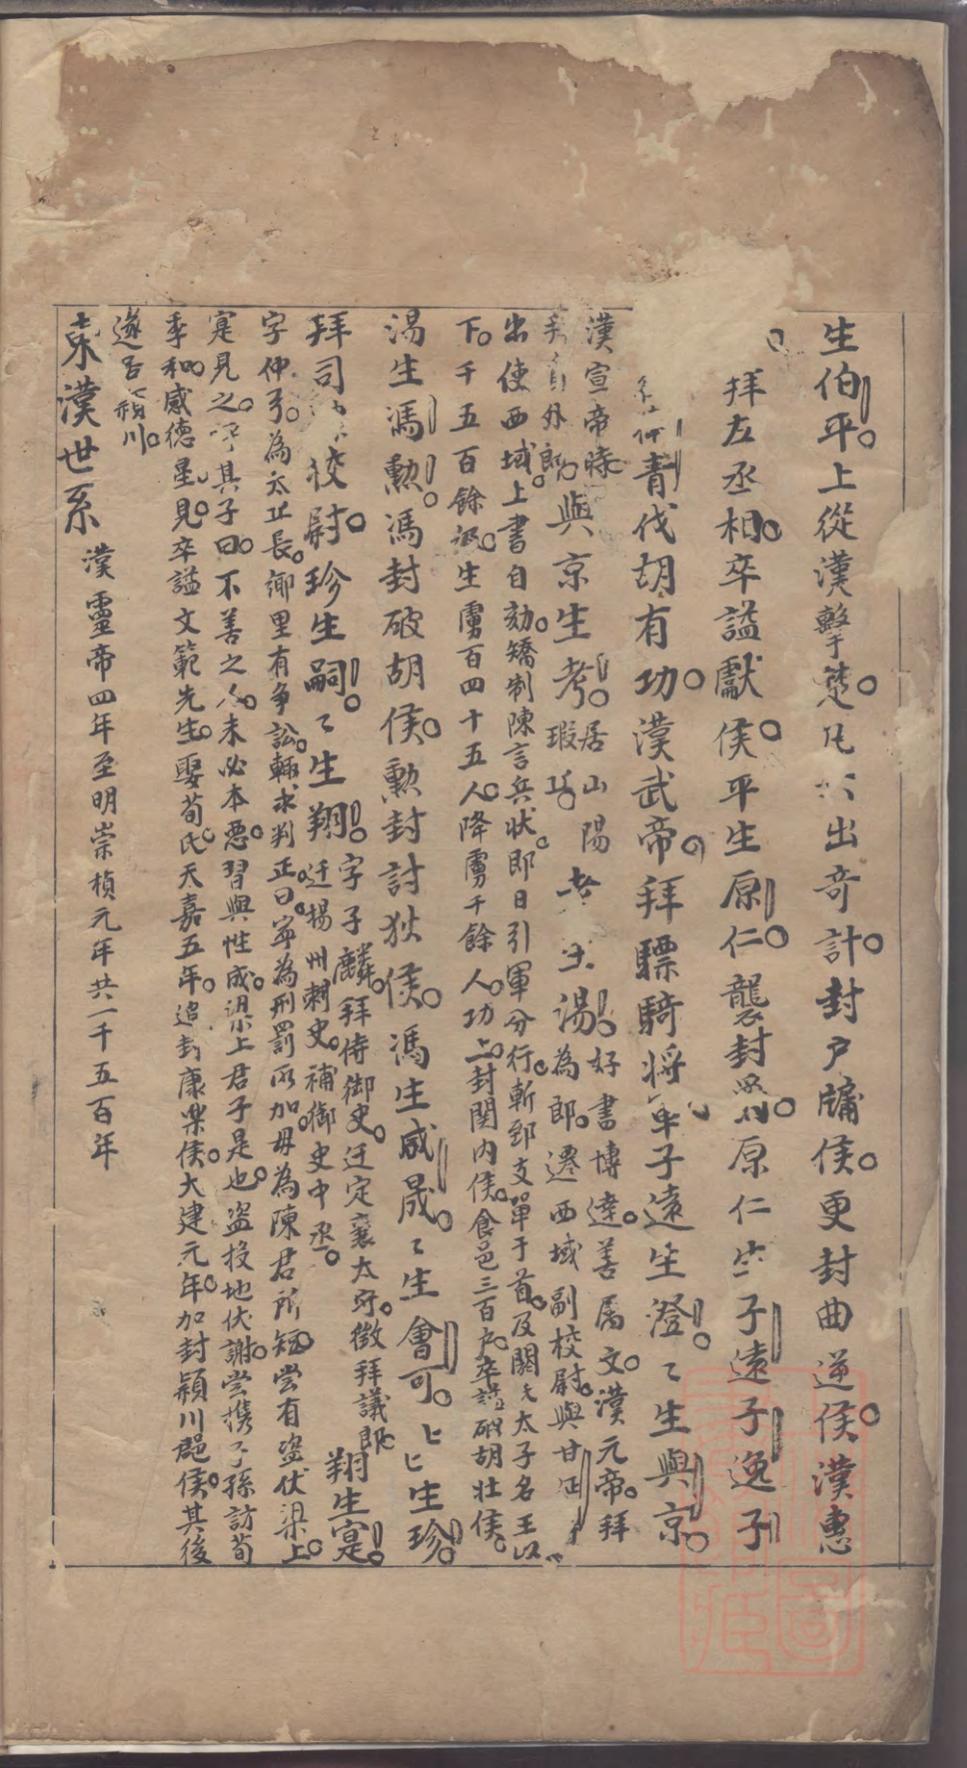 生伯平上從漢擊楚凡六出奇計封戶牖侯更封曲逆侯漢惠
拜左丞相卒謚獻侯平生原仁襲封原仁生子遠子逸子
青伐胡有功漢武帝拜驃騎將軍子遠生澄〻生興京
漢宣帝時外郎興京生考居山陽瑕生湯好書博達善属文漢元帝拜為郎遷西域副校尉與甘延
出使西域上書自劾矯制陳言兵状即日引軍分行斬郅支單于首及閼氏太子名王以
下千五百餘級生虜百四十五人降虜千餘人功上封関内侯食邑三百户卒謚破胡壮侯
湯生馮勲馮封破胡侯勲封討狄侯馮生咸晟〻生會可〻生珍
拜司校尉珍生嗣〻生翔字子麟拜侍御史迁定襄太守徵拜議郎迁揚州刺史補御史中丞翔生寔
字仲弓為太丘長鄉里有争訟輙求判正曰寧為刑罰所加毋為陳君所短尝有盗伏梁上
寔見之呼其子曰不善之人未必本悪習與性成梁上君子是也盗投地伏謝尝携子孫訪荀
季和感德星見卒謚文範先生娶荀氏天嘉五年追封康樂侯大建元年加封穎川郡侯其後
遂居穎川
東漢世系 漢靈帝四年至明崇楨元年共一千五百年